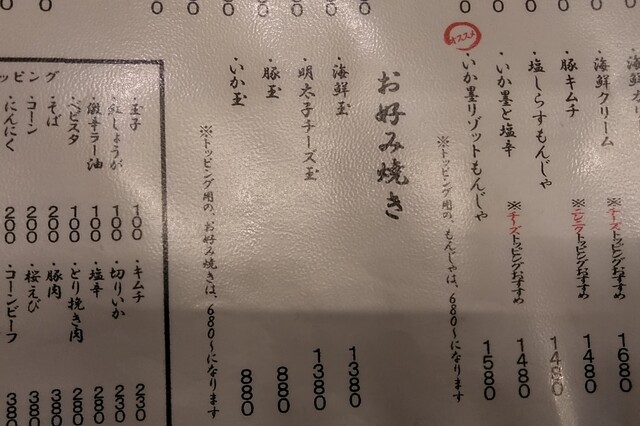 ・海鮮クリーム ※チーズトッピングおすすめ 1680
・豚キムチ ※ニンニクトッピングおすすめ 1480
・塩しらすもんじゃ 1480
・いか墨と塩辛 ※チーズトッピングおすすめ 1480
オススメ
・いか墨リゾットもんじゃ 1580
※トッピング用の、もんじゃは、680〜になります
お好み焼き
・海鮮玉 1380
・明太子チーズ玉 1380
・豚玉 880
・いか玉 880
※トッピング用の、お好み焼きは、680〜になります
ッピング
・玉子 100
・紅しょうが 100
・激辛ラー油 100
・ベビスタ 100
・そば 200
・コーン 200
・にんにく 200
・キムチ 230
・切りいか 230
・塩辛 280
・とり挽き肉 280
・豚肉 380
・桜えび 380
・コーンビーフ 380